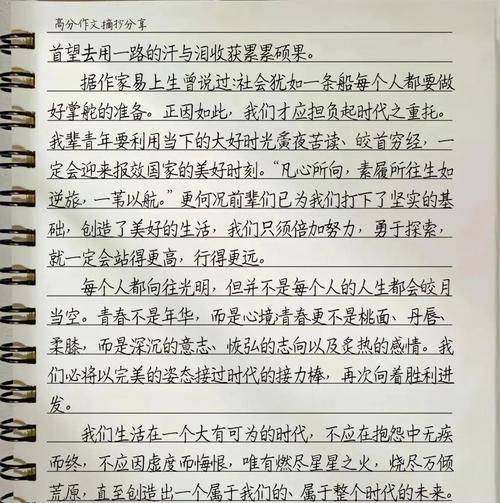 高分作文摘抄分享
首望去用一路的汗与泪收获累累硕果。
据作家易上生曾说过:社会犹如一条船每个人都要做
好掌舵的准备。正因如此，我们才应担负起时代之重托。
我辈青年要利用当下的大好时光黄夜苦读、皎首穷经，一
定会迎来报效国家的美好时刻。“凡心所向，素履所往生如
逆旅，一苇以航。”更何况前辈们已为我们打下了坚实的基
础，创造了美好的生活，我们只须倍加努力，勇于探索，
就一定会站得更高，行得更远。
每个人都向往光明，但并不是每个人的人生都会皎月
当空。青春不是年华，而是心境青春更不是桃面、丹唇、
柔膝，而是深沉的意志、恢弘的志向以及炙热的感情。我
们必将以完美的姿态接过时代的接力棒，再次向着胜利进
发。
我们生活在一个大有可为的时代，不应在抱怨中无疾
而终，不应因虚度而悔恨，唯有燃尽星星之火，烧尽万倾
荒原，直至创造出一个属于我们的、属于整个时代的未来。